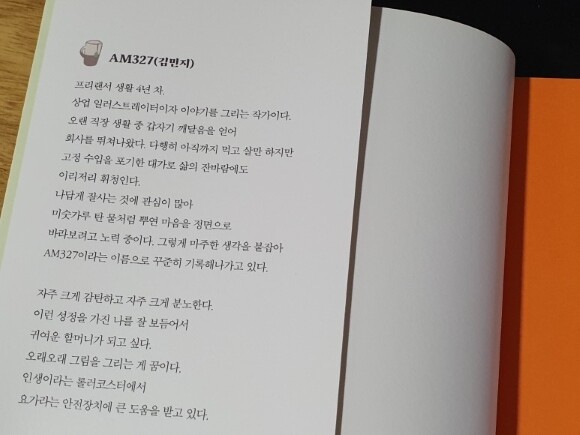 AM327(김민지)
프리랜서 생활 4년 차.
상업 일러스트레이터이자 이야기를 그리는 작가이다.
오랜 직장 생활 중 갑자기 깨달음을 얻어
회사를 뛰쳐나왔다. 다행히 아직까지 먹고 살만 하지만
고정 수입을 포기한 대가로 삶의 잔바람에도
이리저리 휘청인다.
나답게 잘사는 것에 관심이 많아
미숫가루 탄 물처럼 뿌연 마음을 정면으로
바라보려고 노력 중이다. 그렇게 마주한 생각을 붙잡아
AM327이라는 이름으로 꾸준히 기록해나가고 있다.
자주 크게 감탄하고 자주 크게 분노한다.
이런 성정을 가진 나를 잘 보듬어서
귀여운 할머니가 되고 싶다.
오래오래 그림을 그리는 게 꿈이다.
인생이라는 롤러코스터에서
요가라는 안전장치에 큰 도움을 받고 있다.